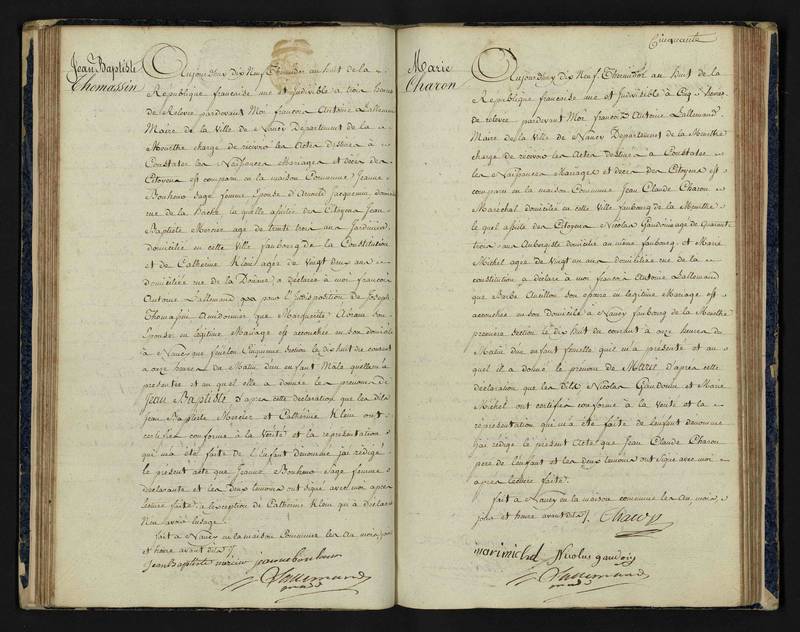 Jean Baptiste
Thomassin
Aujourdhuy dix neuf Thermidor an huit de la
Republique francoise une et Indivisible à trois heures
de Relevée pardevant Moi francois Antoine Lallemand
Maire de la Ville de Nancy Departement de la
Meurthe chargé de recevoir les Actes destinés à
Constater les Naissances Mariages et décés des
Citoyens est comparu en la maison Commune Jeanne
Bonhome Sage femme Epouse d'Arnould Jacquemin domiciliée
rue de la laquelle assistée des Citoyens Jean
Baptiste Mercier agé de trente trois ans Jardinier
domicilié en cette Ville faubourg de la Constitution
et de Catherine Klein agée de Vingt deux ans
domiciliée rue de la Douane a déclarée à moi francois
Antoine Lallemand que pour l'Indisposition de Joseph
Thomassin Amidonnier que Marguerite son
Epouse en legitime Mariage est accouchée en son domicile
à Nancy rue fenelon Cinquieme Section le dix huit du courant
a onze heures du Matin d'un enfant Male quelle m'a
presentée et auquel elle a donnée les prenoms de
Jean Baptiste d'apres cette déclaration que les dits
Jean Baptiste Mercier et Catherine Klein ont
certifiée conforme à la Vérité et la representation
qui m'a été faite de l'Enfant denommé jai redigé
le present acte que Jeanne Bonhome Sage femme
declarante et les deux temoins ont signé avec moi apres
lecture faite a l'exception de Catherine Klein qui a déclaré
n'en avoir l'usage.
fait à Nancy en la maison Commune les An mois jour
et heure avant dits /.
Jean Baptiste mercier jeanne bonhome
Lallemand
maire
Cinquante
Marie
Charon
Aujourdhuy dix neuf Thermidor an huit de la
Republique francoise une et Indivisible à Cinq heures
de relevée pardevant Moi francois Antoine Lallemand
Maire de la Ville de Nancy Departement de la Meurthe
chargé de recevoir les Actes destinés à Constater
les Naissances Mariages et décés des Citoyens est
comparu en la maison Commune Jean Claude Charon
Marechal domicilié en cette Ville faubourg de la Meurthe
lequel assisté des Citoyens Nicolas Gaudoin agé de quarante
trois ans Aubergiste domicilié au même faubourg et Marie
Michel agée de Vingt un ans domiciliée rue de la
constitution a declaré à moi francois Antoine Lallemand
que Barbe Ancillon son epouse en legitime Mariage est
accouchée en son domicile à Nancy faubourg de la Meurthe
premiere Section le dix huit du courant à onze heures du
Matin d'un enfant femelle quil m'a présenté et au
quel il a donné le prenom de Marie d'apres cette
déclaration que les dits Nicolas Gaudouin et Marie
Michel ont certifiée conforme à la Vérité et la
représentation qui m'a été faite de l'enfant denommé
jai redigé le present Acte que Jean Claude Charon
pere de l'enfant et les deux temoins ont signé avec moi
apres lecture faite.
fait à Nancy en la maison commune les An, mois,
jour et heure avant dits /. Charon
marimichel Nicolas gaudoin
Lallemand
maire